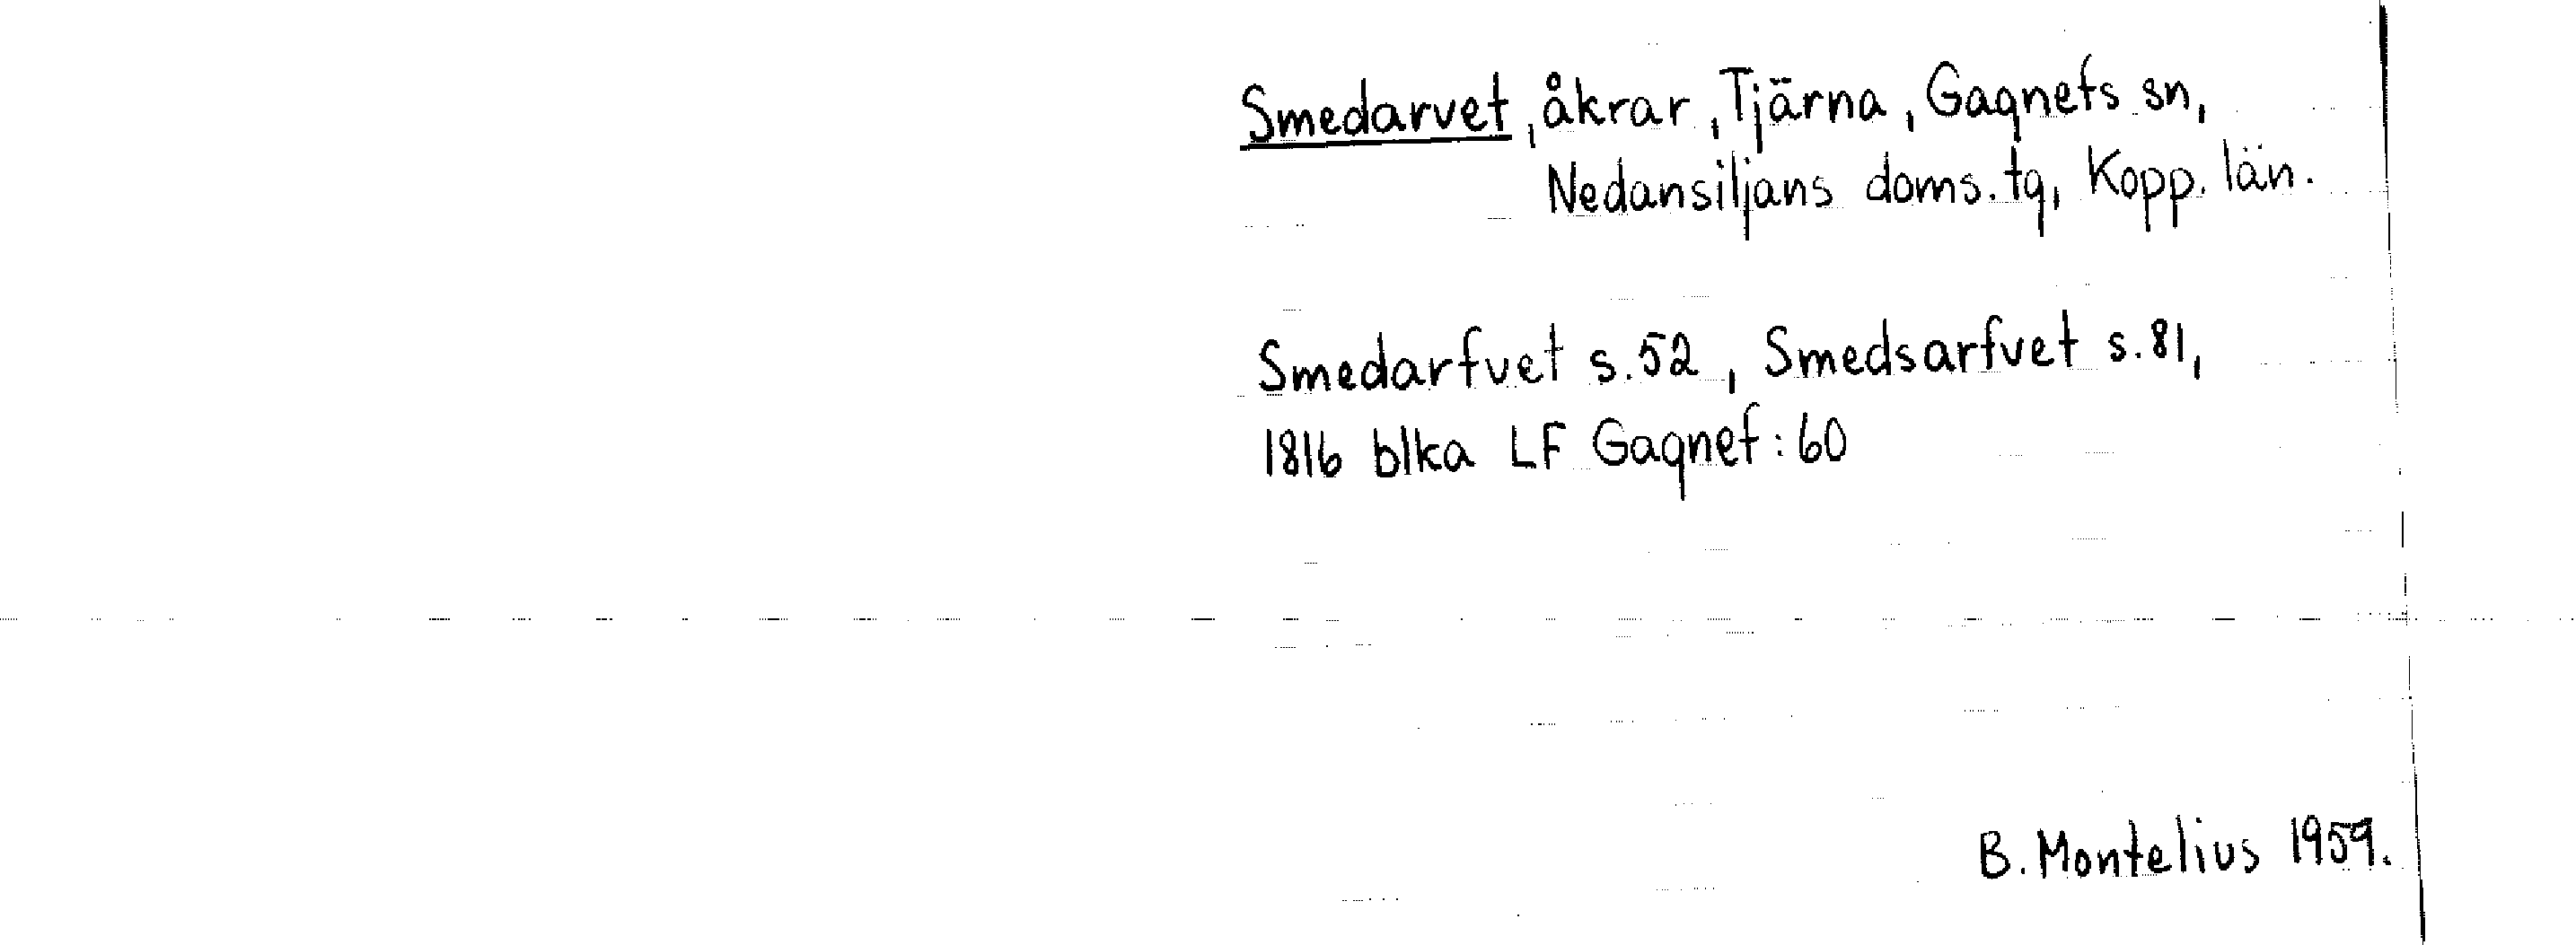 Smedarvet, åkrar, Tjärna, Gagnefs sn,
Nedansiljans doms.tg, Kopp. län.
Smedarfvet s.52, Smedsarfvet s.81,
1816 blka LF Gagnef:60
B. Montelius 1959.